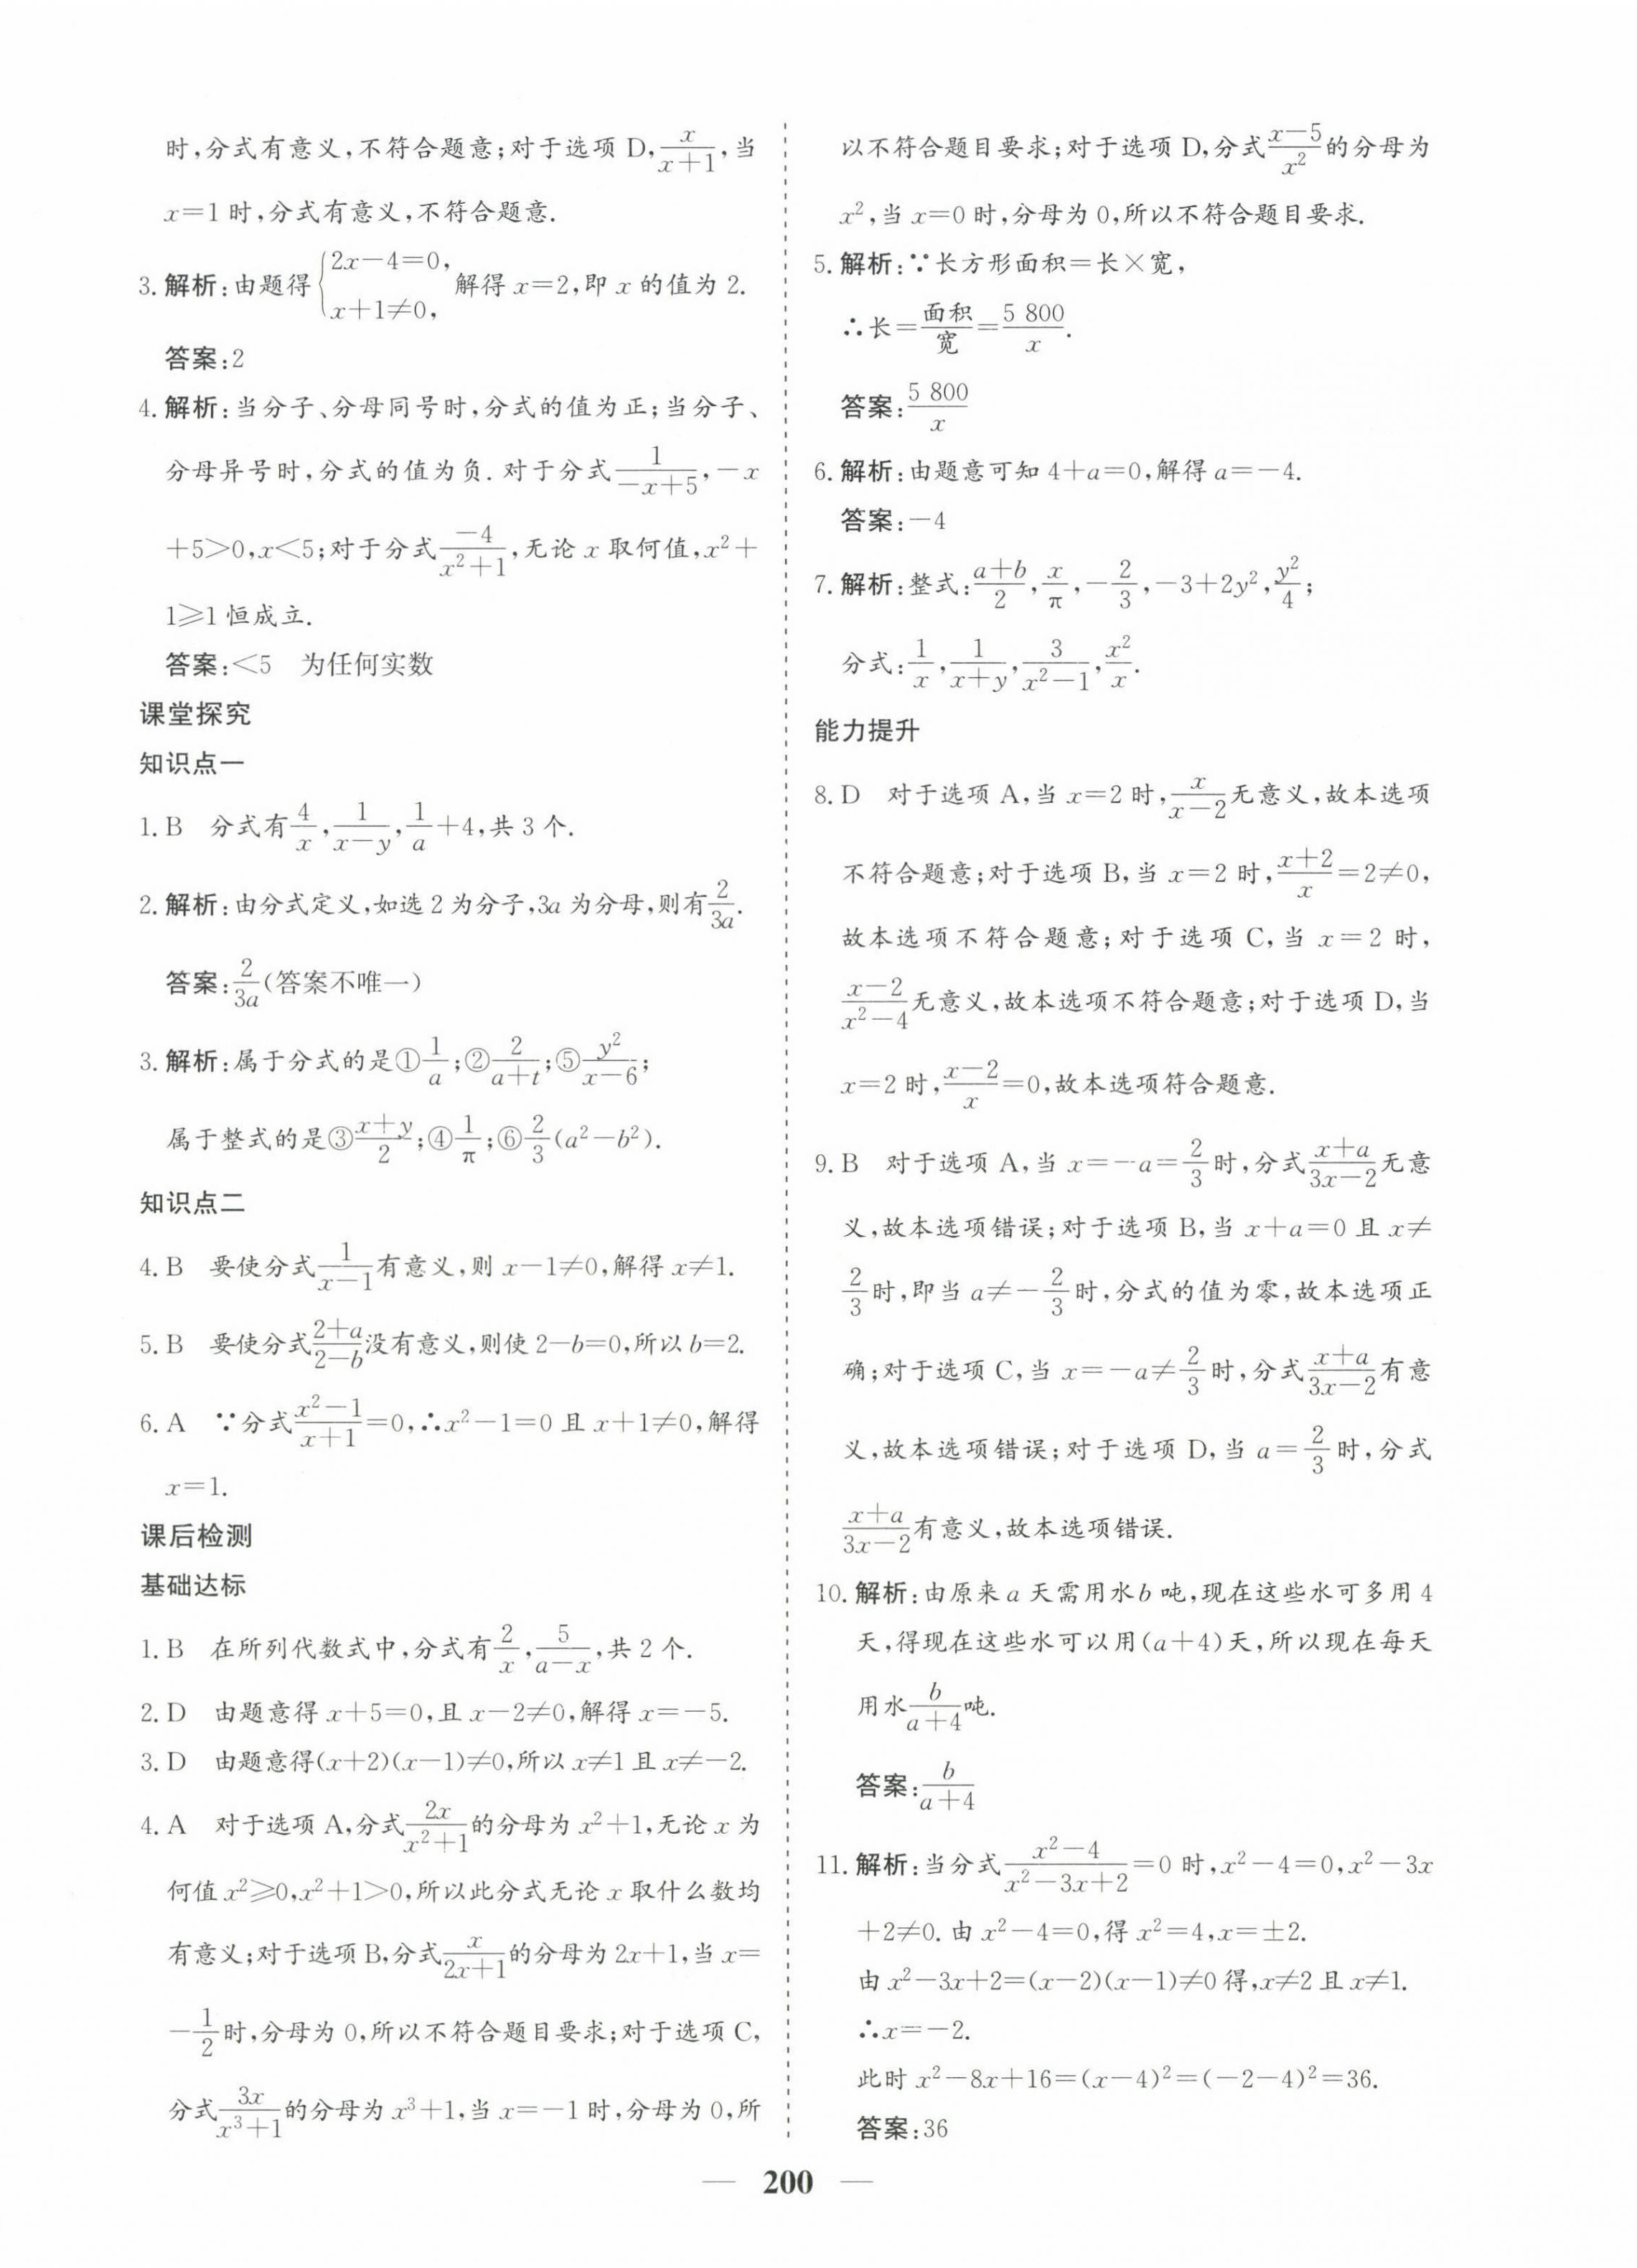 时,分式有意义,不符合题意;对于选项 D,x/(x+1),当
x=1 时,分式有意义,不符合题意.
3. 解析:由题得{2x-4=0, x+1≠0, 解得 x=2,即 x 的值为 2.
答案:2
4. 解析:当分子、分母同号时,分式的值为正;当分子、
分母异号时,分式的值为负. 对于分式1/(-x+5),-x
+5>0,x<5;对于分式-4/(x²+1),无论 x 取何值,x²+
1≥1 恒成立.
答案:<5 为任何实数
课堂探究
知识点一
1. B 分式有4/x,1/(x-y),1/a+4,共 3 个.
2. 解析:由分式定义,如选 2 为分子,3a 为分母,则有2/3a.
答案:2/3a(答案不唯一)
3. 解析:属于分式的是①1/a;②2/(a+t);⑤y²/(x-6);
属于整式的是③(x+y)/2;④1/π;⑥2/3(a²-b²).
知识点二
4. B 要使分式1/(x-1)有意义,则 x-1≠0,解得 x≠1.
5. B 要使分式(2+a)/(2-b)没有意义,则使 2-b=0,所以 b=2.
6. A ∵分式(x²-1)/(x+1)=0,∴x²-1=0 且 x+1≠0,解得
x=1.
课后检测
基础达标
1. B 在所列代数式中,分式有2/x,5/(a-x),共 2 个.
2. D 由题意得 x+5=0,且 x-2≠0,解得 x=-5.
3. D 由题意得(x+2)(x-1)≠0,所以 x≠1 且 x≠-2.
4. A 对于选项 A,分式2x/(x²+1)的分母为 x²+1,无论 x 为
何值 x²≥0,x²+1>0,所以此分式无论 x 取什么数均
有意义;对于选项 B,分式x/(2x+1)的分母为 2x+1,当 x=
-1/2时,分母为 0,所以不符合题目要求;对于选项 C,
分式3x/(x³+1)的分母为 x³+1,当 x=-1 时,分母为 0,所
以不符合题目要求;对于选项 D,分式(x-5)/x²的分母为
x²,当 x=0 时,分母为 0,所以不符合题目要求.
5. 解析:∵长方形面积=长×宽,
∴长=面积/宽=5 800/x.
答案:5 800/x
6. 解析:由题意可知 4+a=0,解得 a=-4.
答案:-4
7. 解析:整式:(a+b)/2,x/π,-2/3,-3+2y²,y²/4;
分式:1/x,1/(x+y),3/(x²-1),x²/x.
能力提升
8. D 对于选项 A,当 x=2 时,x/(x-2)无意义,故本选项
不符合题意;对于选项 B,当 x=2 时,(x+2)/x=2≠0,
故本选项不符合题意;对于选项 C,当 x=2 时,
(x-2)/(x²-4)无意义,故本选项不符合题意;对于选项 D,当
x=2 时,(x-2)/x=0,故本选项符合题意.
9. B 对于选项 A,当 x=-a=2/3时,分式(x+a)/(3x-2)无意
义,故本选项错误;对于选项 B,当 x+a=0 且 x≠
2/3时,即当 a≠-2/3时,分式的值为零,故本选项正
确;对于选项 C,当 x=-a≠2/3时,分式(x+a)/(3x-2)有意
义,故本选项错误;对于选项 D,当 a=2/3时,分式
(x+a)/(3x-2)有意义,故本选项错误.
10. 解析:由原来 a 天需用水 b 吨,现在这些水可多用 4
天,得现在这些水可以用(a+4)天,所以现在每天
用水b/(a+4)吨.
答案:b/(a+4)
11. 解析:当分式(x²-4)/(x²-3x+2)=0 时,x²-4=0,x²-3x
+2≠0. 由 x²-4=0,得 x²=4,x=±2.
由 x²-3x+2=(x-2)(x-1)≠0 得,x≠2 且 x≠1.
∴x=-2.
此时 x²-8x+16=(x-4)²=(-2-4)²=36.
答案:36
— 200 —